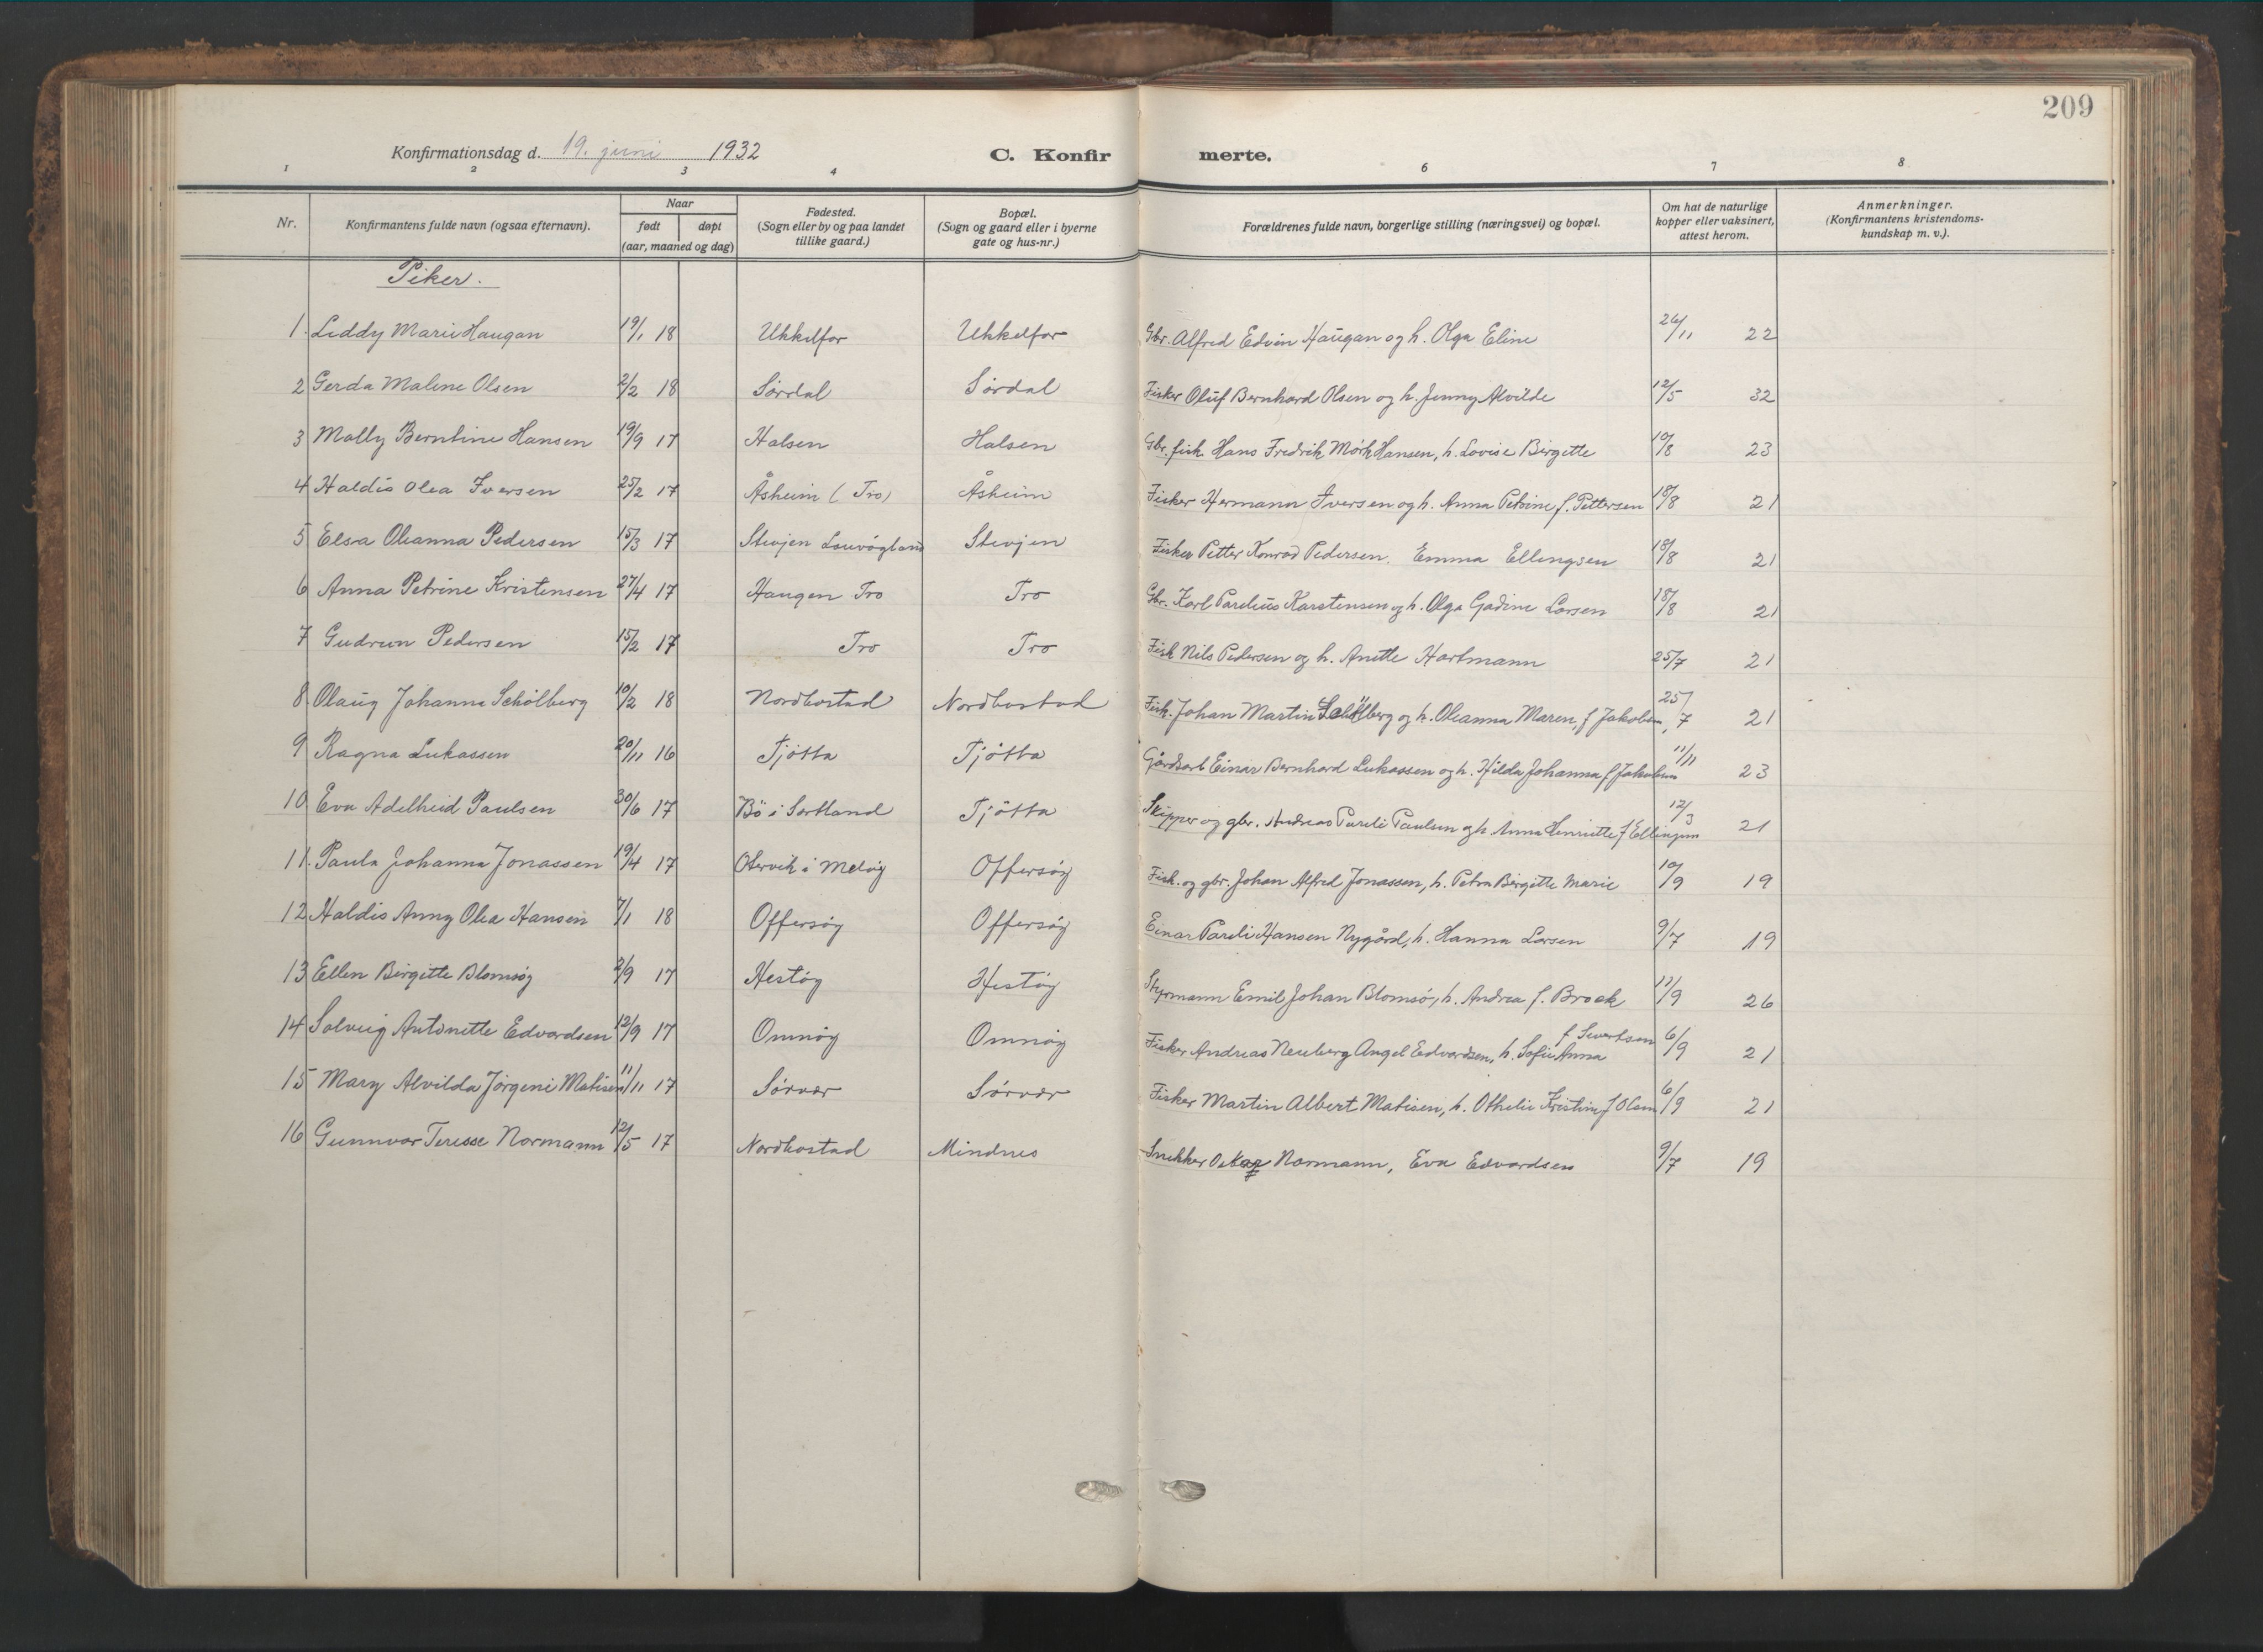 209
Konfirmationsdag d. 19. juni 1932 C. Konfir merte.
1 2 3 4 6 7 8
Nr. Konfirmantens fulde navn (ogsaa efternavn). Naar født døpt (aar, maaned og dag) Fødested. (Sogn eller by og paa landet tillike gaard.) Bopæl. (Sogn og gaard eller i byerne gate og hus-nr.) Forældrenes fulde navn, borgerlige stilling (næringsvei) og bopæl. Om hat de naturlige kopper eller vaksinert, attest herom. Anmerkninger. (Konfirmantens kristendoms- kundskap m. v.).
Piker.
1. Liddy Marie Haugan 19/1 18 Ukkelfor Ukkelfor Gbr. Alfred Edvin Haugan og h. Olga Eline 26/11 22
2 Gerda Malene Olsen 2/2 18 Sørdal Sørdal Fisker Oluf Bernhard Olsen og h. Jenny Alvilde 12/5 32
3 Molly Berntine Hansen 19/9 17 Halsen Halsen Gbr. fisk Hans Fredrik Mørk Hansen, h. Lovise Birgitte 10/8 23
4 Haldis Olea Iversen 25/2 17 Åsheim (Tro) Åsheim Fisker Hermann Iversen og h. Anna Petrine f. Pettersen 18/8 21
5 Elsa Oleanna Pedersen 15/3 17 Stevjen Stevjen Fisker Petter Konrad Pedersen. Emma Ellingsen 18/8 21
6 Anna Petrine Kristensen 27/4 17 Haugen Tro Tro Gbr. Karl Parelius Karstensen og h. Olga Gadine Larsen 18/8 21
7 Gudrun Pedersen 15/2 17 Tro Tro Fisk Nils Pedersen og h. Anette Hartmann 25/7 21
8. Olaug Johanna Schölberg 10/2 18 Nordbostad Nordbostad Fisk. Johan Martin Schölberg og h. Oleanna Maren, f Jakobsen, 25/7 21
9 Ragna Lukassen 20/11 16 Tjøtta Tjøtta Gårdsarb Einar Bernhard Lukassen og h. Hilda Johanna f Jakobsen 11/11 23
10 Eva Adelheid Paulsen 30/6 17 Bö i Sortland Tjøtta Skipper og gbr. Andreas Pareli Paulsen og h. Anna Henriette f Ellingsen 12/3 21
11. Paula Johanna Jonassen 19/4 17 Otervik i Meløy Offersøy Fisk. og gbr. Johan Alfred Jonassen, h. Petra Birgitte Marie 10/9 19
12 Haldis Anny Olea Hansen 7/1 18 Offersøy Offersøy Einar Pareli Hansen Nygård, h. Hanna Larsen 9/7 19
13 Ellen Birgitte Blomsøy 2/9 17 Hestøy Hestøy Styrmann Emil Johan Blomsø, h. Andrea f. Brock 11/9 26
14 Solveig Antonette Edvardsen 12/9 17 Omnøy Omnøy Fisker Andreas Neuberg Angel Edvardsen, h. Sofie Anna f Sivertsen 6/9 21
15 Mary Alvilda Jörgine Matisen 11/11 17 Sørvær Sørvær Fisker Martin Albert Matisen, h. Othelie Kristine f Olsen 6/9 21
16 Gunnvor Teresse Normann 12/5 17 Nordbostad Mindnes Snekker Oskar Normann, Eva Edvardsen 9/7 19